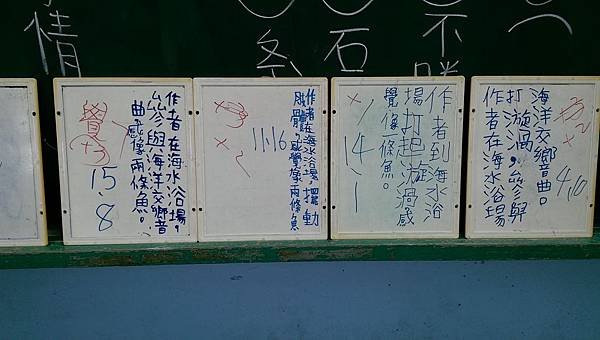 情
石
不
作者在海水浴場，
參與海洋交響音
曲感像兩條魚。
覺
+3
15
8
作者在海水浴場擺動
肢體，感覺像兩條魚
11 16
作者到海水浴
場打起漩渦感
覺像一條魚。
×1
14
1
作者在海水浴場
打漩渦，參與
海洋交響曲。
×2
4,10